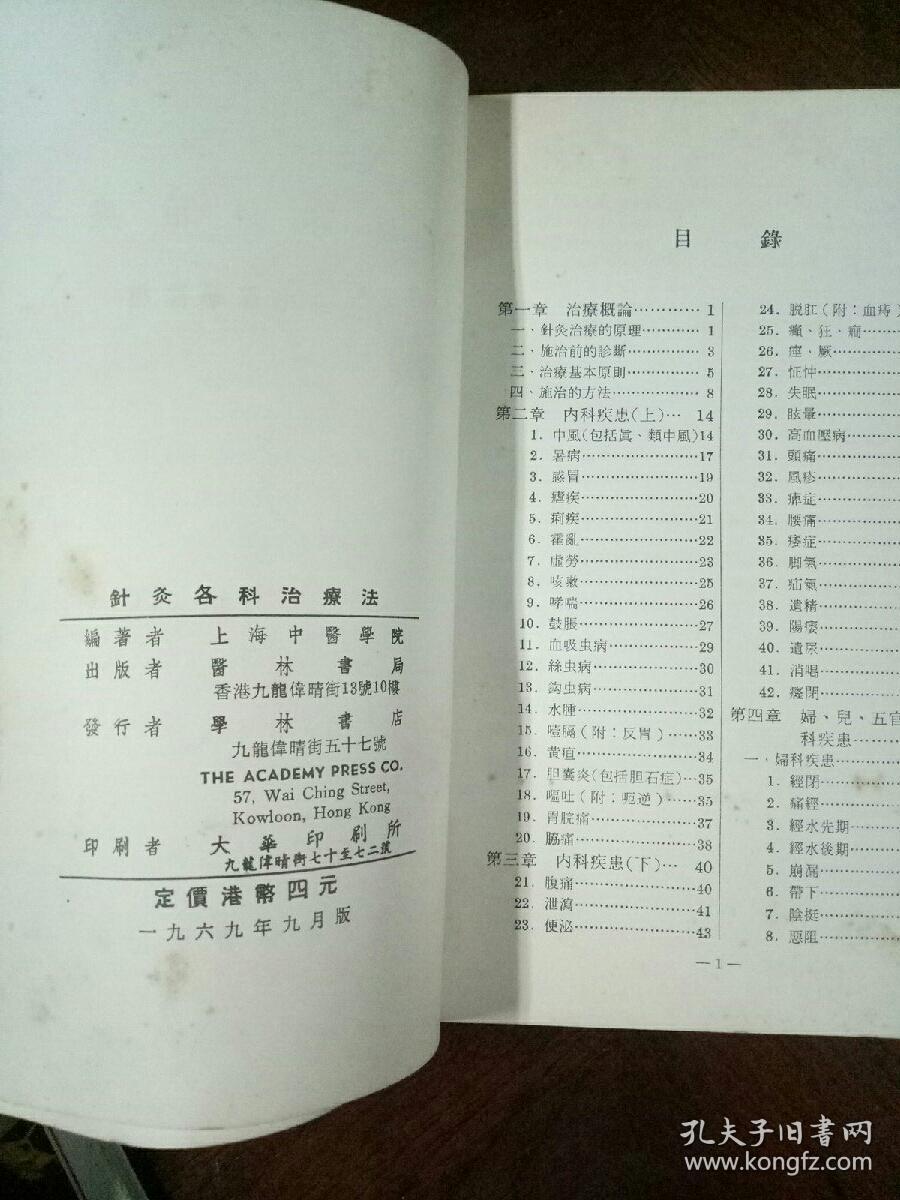 針灸各科治療法
編著者 上海中醫學院
出版者 醫林書局
香港九龍偉晴街13號10樓
發行者 學林書店
九龍偉晴街五十七號
THE ACADEMY PRESS CO.
57, Wai Ching Street,
Kowloon, Hong Kong
印刷者 大華印刷所
九龍偉晴街七十至七二號
定價港幣四元
一九六九年九月版
目 錄
第一章 治療概論………… 1
一、針灸治療的原理………… 1
二、施治前的診斷………… 3
三、治療基本原則………… 5
四、施治的方法………… 8
第二章 內科疾患(上)… 14
1. 中風(包括眞、類中風)14
2. 暑病…………17
3. 感冒…………19
4. 瘧疾…………20
5. 痢疾…………21
6. 霍亂…………22
7. 虛勞…………23
8. 咳嗽…………25
9. 哮喘…………26
10. 鼓脹…………27
11. 血吸虫病…………29
12. 絲虫病…………30
13. 鈎虫病…………31
14. 水腫…………32
15. 噎膈(附:反胃)…………33
16. 黃疸…………34
17. 胆囊炎(包括胆石症)…35
18. 嘔吐(附:呃逆)…………35
19. 胃脘痛…………37
20. 脇痛…………38
第三章 內科疾患(下)… 40
21. 腹痛…………40
22. 泄瀉…………41
23. 便泌…………43
24. 脫肛(附:血痔)
25. 癲、狂、癇…………
26. 痙、厥…………
27. 怔忡…………
28. 失眠…………
29. 眩暈…………
30. 高血壓病…………
31. 頭痛…………
32. 風疹…………
33. 痺症…………
34. 腰痛…………
35. 痿症…………
36. 脚氣…………
37. 疝氣…………
38. 遺精…………
39. 陽痿…………
40. 遺尿…………
41. 消喝…………
42. 癃閉…………
第四章 婦、兒、五官
科疾患…………
一、婦科疾患…………
1. 經閉…………
2. 痛經…………
3. 經水先期…………
4. 經水後期…………
5. 崩漏…………
6. 帶下…………
7. 陰挺…………
8. 惡阻…………
— 1 —
孔夫子旧书网
www.kongfz.com